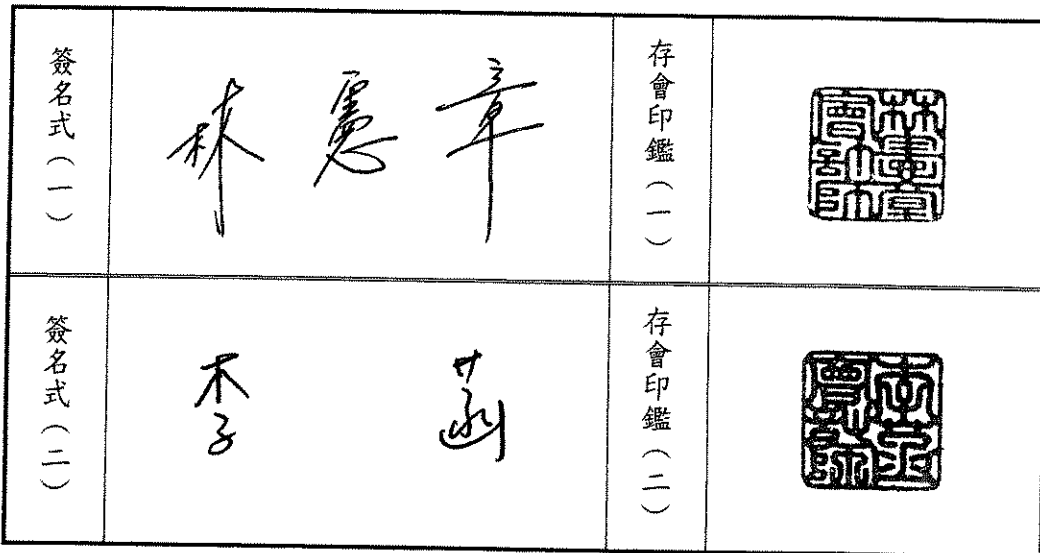 簽名式（一）
林憲章
存會印鑑（一）
林憲章會計師
簽名式（二）
李菡
存會印鑑（二）
李菡會計師